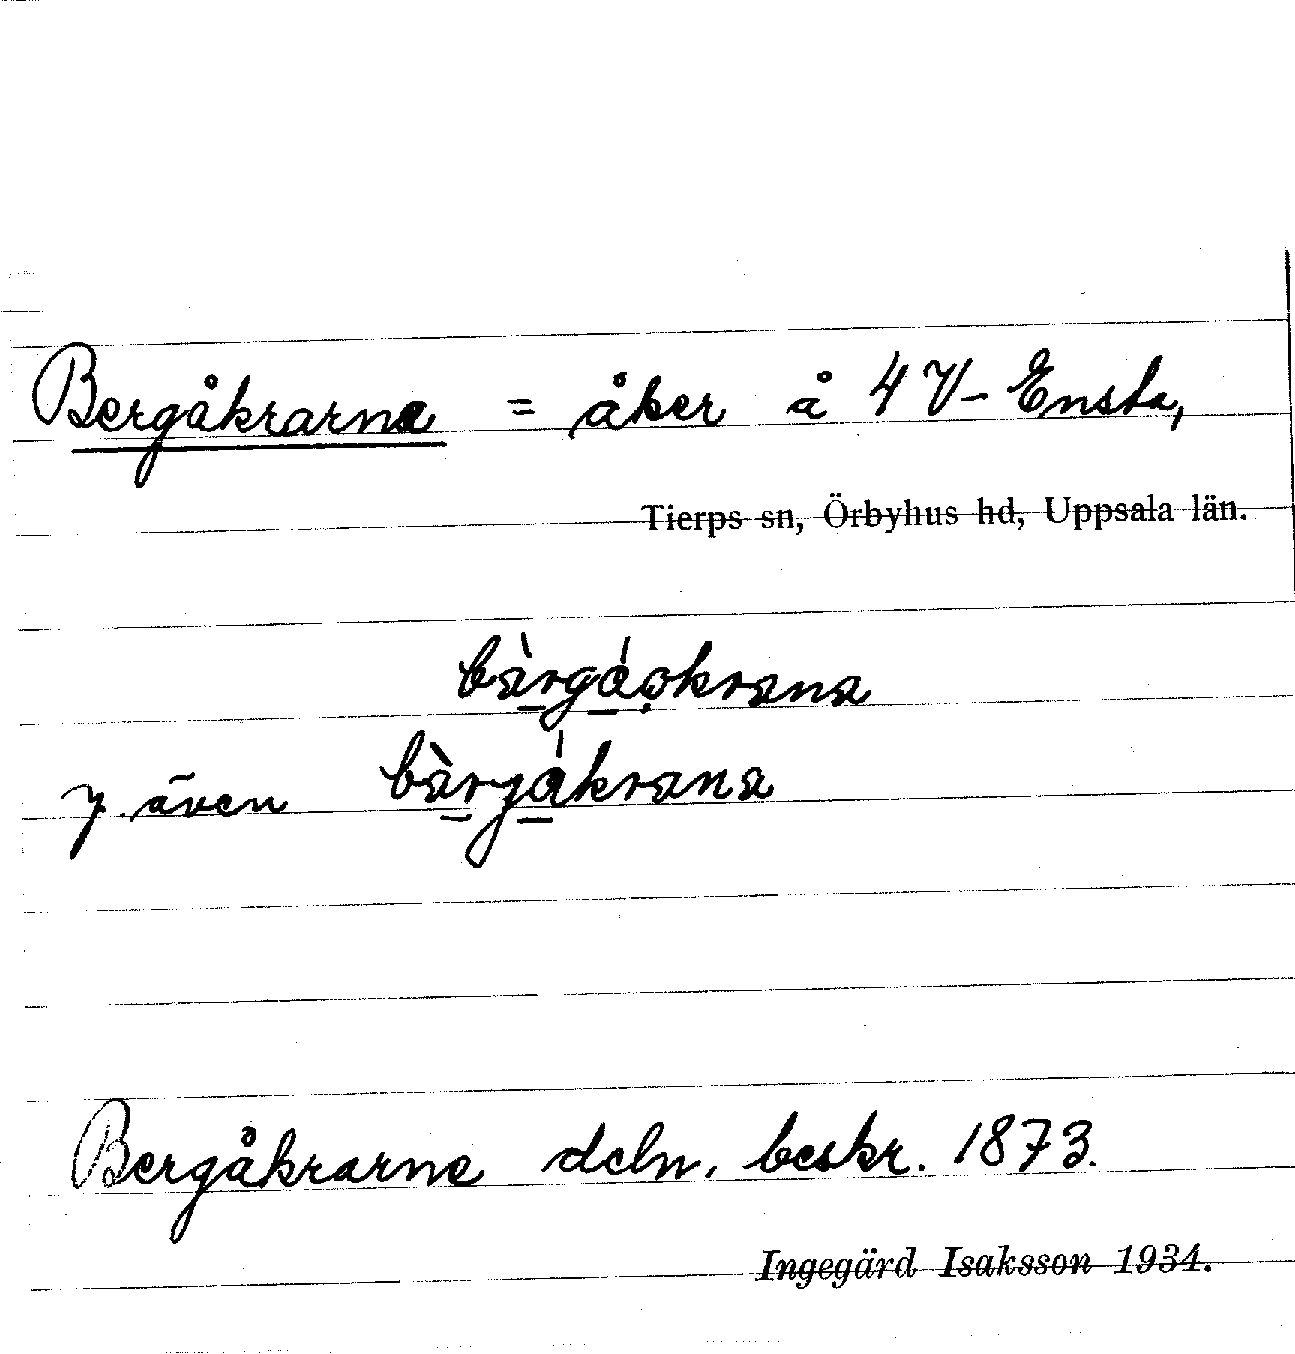 Bergåkrarna = åker å 4 V-Ensta,
Tierps sn, Örbyhus hd, Uppsala län.
bàrgáokrana
även bàryákrana
Bergåkrarne deln. beskr. 1873.
Ingegärd Isaksson 1934.